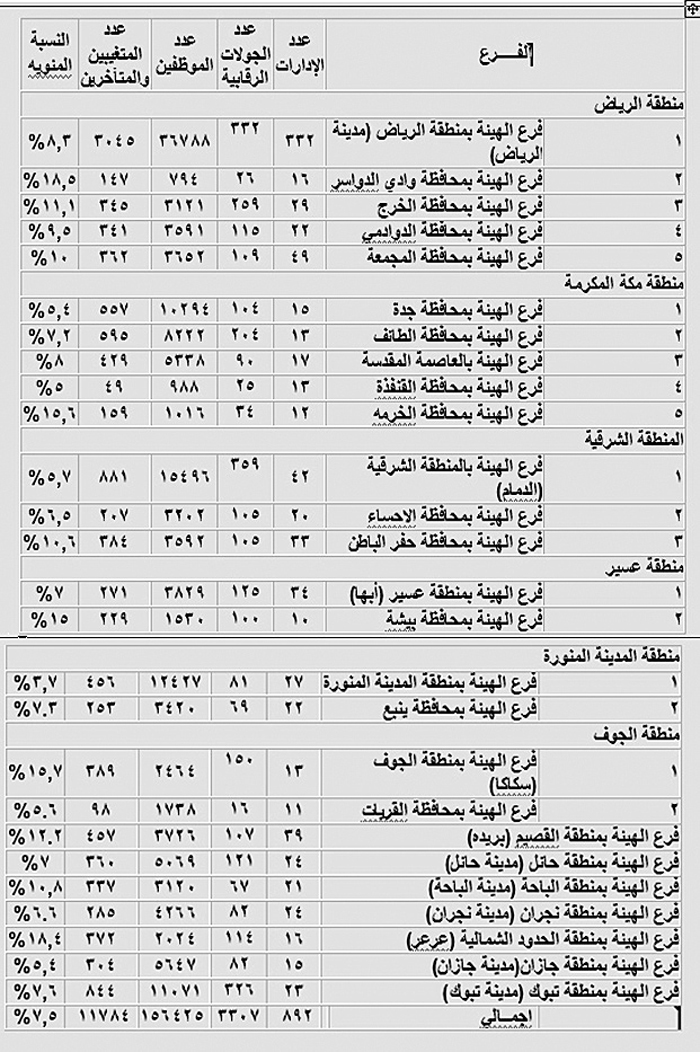 الفـــرع عدد الإدارات عدد الجولات الرقابية عدد الموظفين عدد المتغيبين والمتأخرين النسبة المئويه
منطقة الرياض
١ فرع الهيئة بمنطقة الرياض (مدينة الرياض) ٣٣٢ ٣٣٢ ٣٦٧٨٨ ٣٠٤٥ ٨,٣%
٢ فرع الهيئة بمحافظة وادي الدواسر ١٦ ٢٦ ٧٩٤ ١٤٧ ١٨,٥%
٣ فرع الهيئة بمحافظة الخرج ٢٩ ٢٥٩ ٣١٢١ ٣٤٥ ١١,١%
٤ فرع الهيئة بمحافظة الدوادمي ٢٢ ١١٥ ٣٥٩١ ٣٤١ ٩,٥%
٥ فرع الهيئة بمحافظة المجمعة ٤٩ ١٠٩ ٣٦٥٢ ٣٦٢ ١٠%
منطقة مكة المكرمة
١ فرع الهيئة بمحافظة جدة ١٥ ١٠٤ ١٠٢٩٤ ٥٥٧ ٥,٤%
٢ فرع الهيئة بمحافظة الطائف ١٣ ٢٠٤ ٨٢٢٢ ٥٩٥ ٧,٢%
٣ فرع الهيئة بالعاصمة المقدسة ١٧ ٩٠ ٥٣٣٨ ٤٢٩ ٨%
٤ فرع الهيئة بمحافظة القنفذة ١٣ ٢٥ ٩٨٨ ٤٩ ٥%
٥ فرع الهيئة بمحافظة الخرمه ١٢ ٣٤ ١٠١٦ ١٥٩ ١٥,٦%
المنطقة الشرقية
١ فرع الهيئة بالمنطقة الشرقية (الدمام) ٤٢ ٣٥٩ ١٥٤٩٦ ٨٨١ ٥,٧%
٢ فرع الهيئة بمحافظة الاحساء ٢٠ ١٠٥ ٣٢٠٢ ٢٠٧ ٦,٥%
٣ فرع الهيئة بمحافظة حفر الباطن ٣٣ ١٠٥ ٣٥٩٢ ٣٨٤ ١٠,٦%
منطقة عسير
١ فرع الهيئة بمنطقة عسير (أبها) ٣٤ ١٢٥ ٣٨٢٩ ٢٧١ ٧%
٢ فرع الهيئة بمحافظة بيشة ١٠ ١٠٠ ١٥٣٠ ٢٢٩ ١٥%
منطقة المدينة المنورة
١ فرع الهيئة بمنطقة المدينة المنورة ٢٧ ٨١ ١٢٤٢٧ ٤٥٦ ٣,٧%
٢ فرع الهيئة بمحافظة ينبع ٢٢ ٦٩ ٣٤٢٠ ٢٥٣ ٧.٣%
منطقة الجوف
١ فرع الهيئة بمنطقة الجوف (سكاكا) ١٣ ١٥٠ ٢٤٦٤ ٣٨٩ ١٥,٧%
٢ فرع الهيئة بمحافظة القريات ١١ ١٦ ١٧٣٨ ٩٨ ٥.٦%
فرع الهيئة بمنطقة القصيم (بريده) ٣٩ ١٠٧ ٣٧٢٦ ٤٥٧ ١٢.٢%
فرع الهيئة بمنطقة حائل (مدينة حائل) ٢٤ ١٢١ ٥٠٦٩ ٣٦٠ ٧%
فرع الهيئة بمنطقة الباحة (مدينة الباحة) ٢١ ٦٧ ٣١٢٠ ٣٣٧ ١٠,٨%
فرع الهيئة بمنطقة نجران (مدينة نجران) ٢٤ ٨٢ ٤٢٦٦ ٢٨٥ ٦.٦%
فرع الهيئة بمنطقة الحدود الشمالية (عرعر) ١٦ ١١٤ ٢٠٢٤ ٣٧٢ ١٨,٤%
فرع الهيئة بمنطقة جازان(مدينة جازان) ١٥ ٨٢ ٥٦٤٧ ٣٠٤ ٥,٤%
فرع الهيئة بمنطقة تبوك (مدينة تبوك) ٢٣ ٣٢٦ ١١٠٧١ ٨٤٤ ٧,٦%
اجمــالي ٨٩٢ ٣٣٠٧ ١٥٦٤٢٥ ١١٧٨٤ ٧,٥%